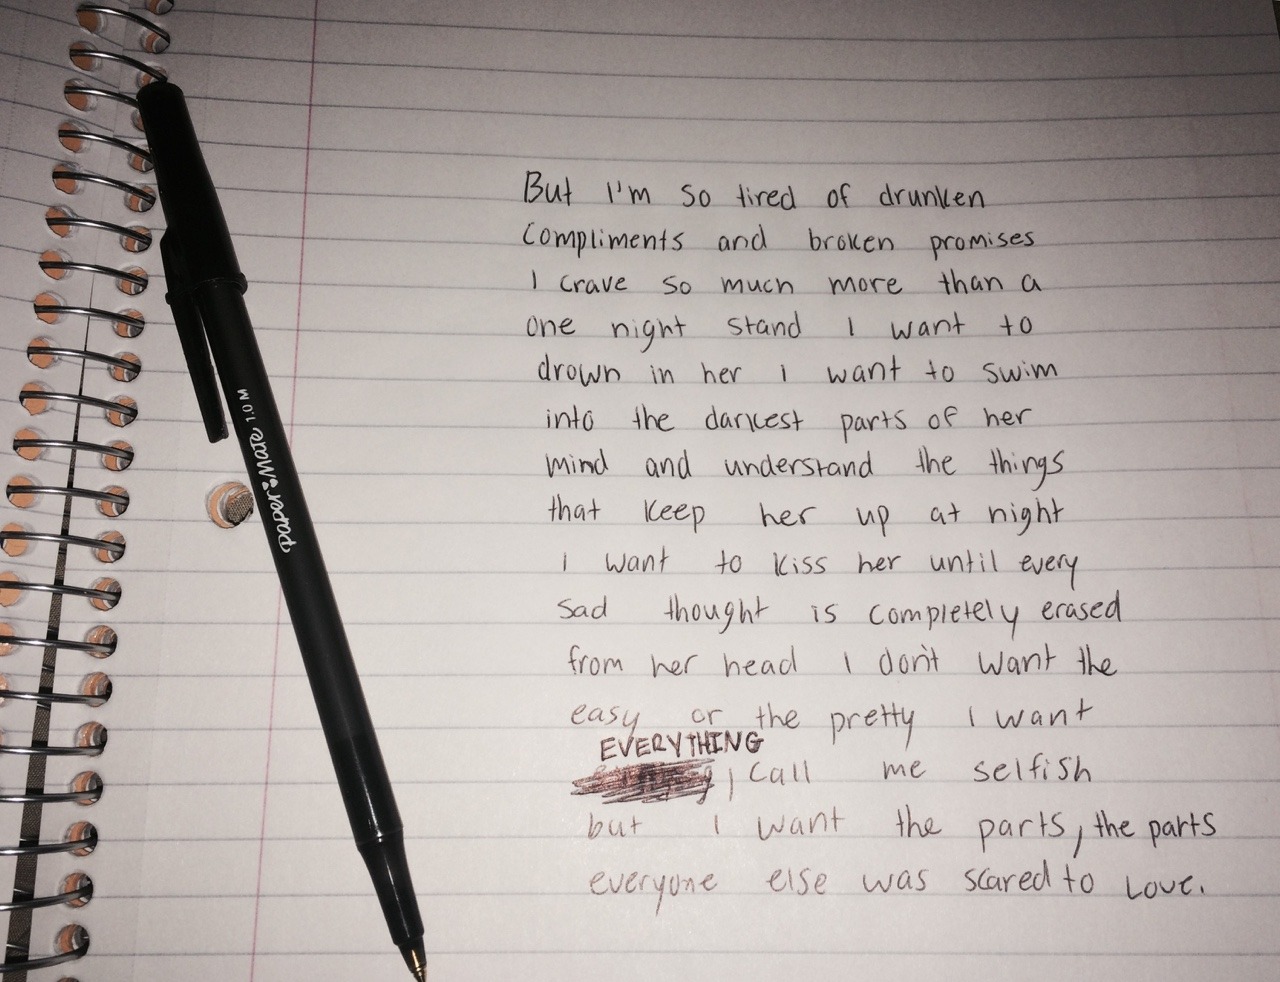 But I'm so tired of drunken
compliments and broken promises
I crave so much more than a
one night stand I want to
drown in her i want to swim
into the darkest parts of her
mind and understand the things
that keep her up at night
I want to kiss her until every
sad thought is completely erased
from her head I don't want the
easy or the pretty I want
EVERYTHING
, call me selfish
but I want the parts, the parts
everyone else was scared to love.
PaperMate 1.0 M